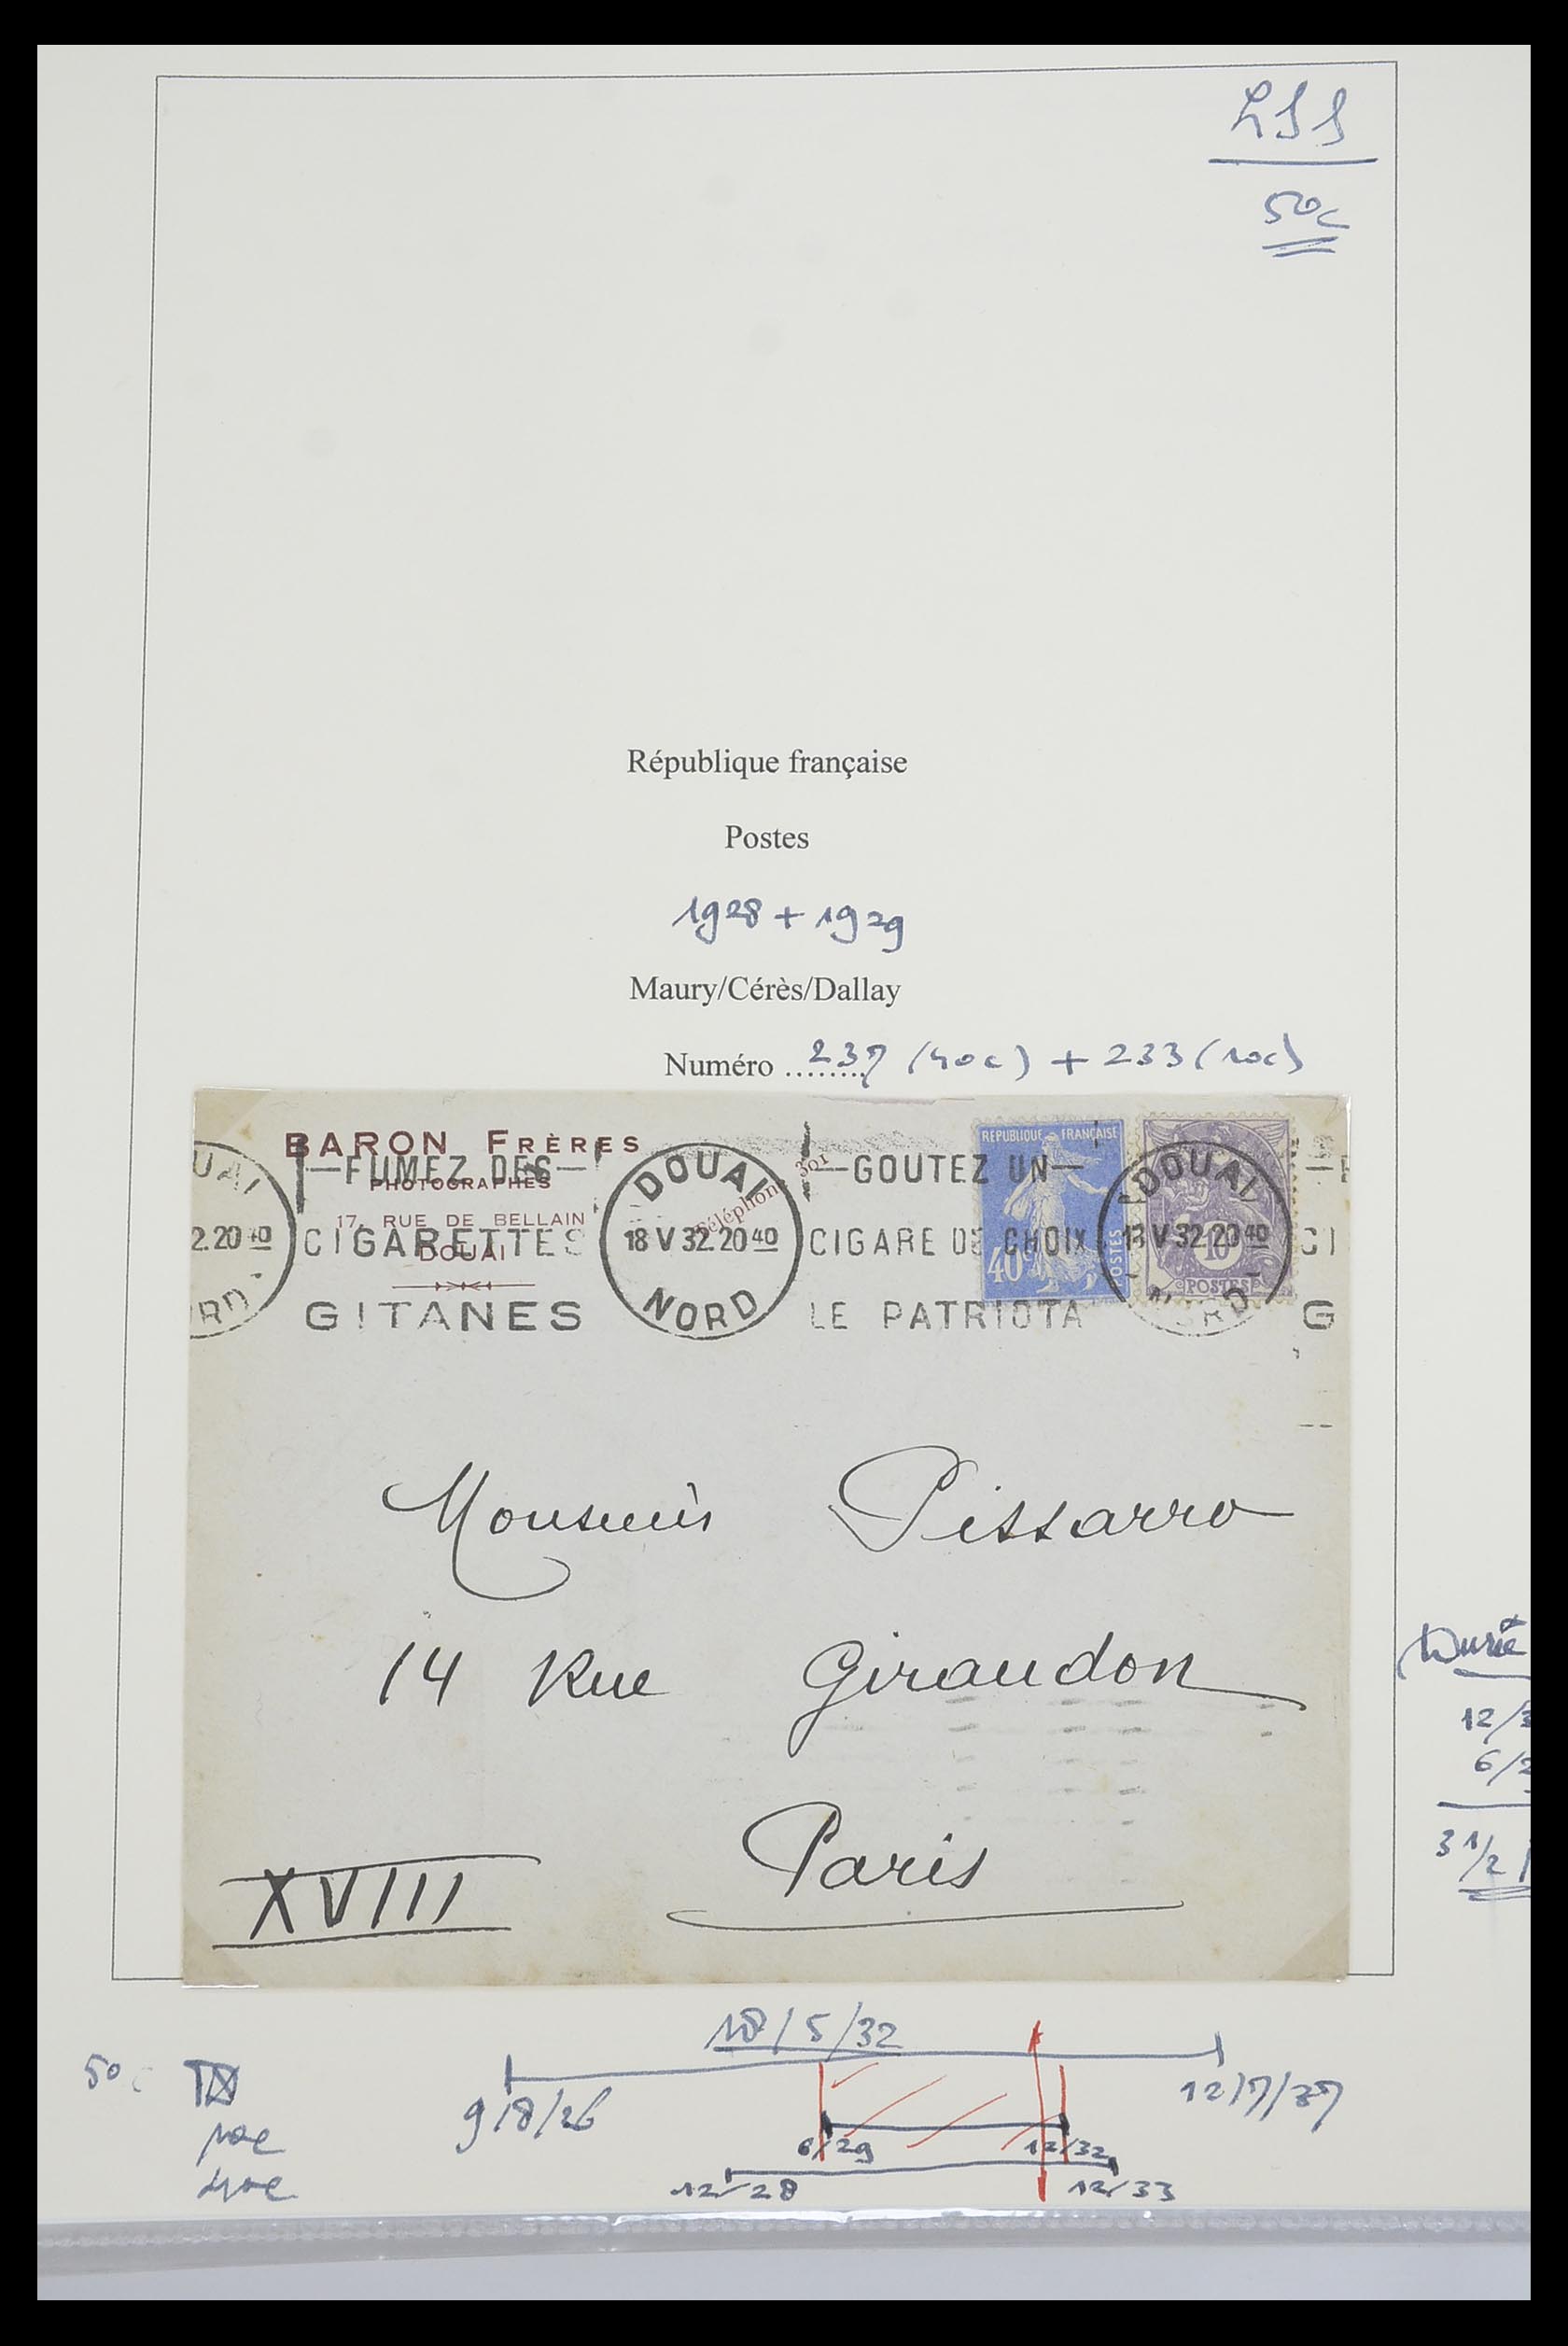 LSS
50c
République française
Postes
1928 + 1929
Maury/Cérès/Dallay
Numéro ........ 237 (40c) + 233 (10c)
BARON FRÈRES
PHOTOGRAPHES
17, RUE DE BELLAIN
DOUAI
Téléphone 301
UAI
2.20 40
RD
—FUMEZ DES—
CIGARETTES
GITANES
DOUAI
18 V 32.20 40
NORD
—GOUTEZ UN—
CIGARE DE CHOIX
LE PATRIOTA
REPUBLIQUE FRANÇAISE
40c
POSTES
10
POSTES
DOUAI
18 V 32.20 40
NORD
CI
G
Monsieur Pissarro
14 Rue Giraudon
Paris
XVIII
Durée
12/3
6/2
3 1/2
18/5/32
50c
9/8/26
12/7/37
10c
6/29
12/32
40c
12/28
12/33